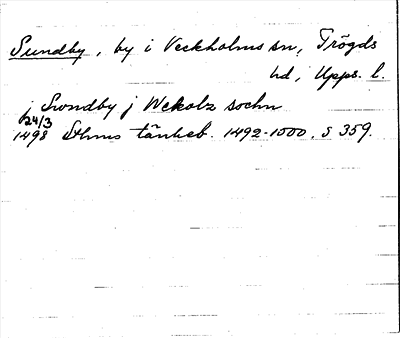 Sundby, by i Veckholms sn, Trögds
hd, Upps. l.
j Swndby j Wekolz sochn
24/3
1498 Sthms tänkeb. 1492-1500, s 359.